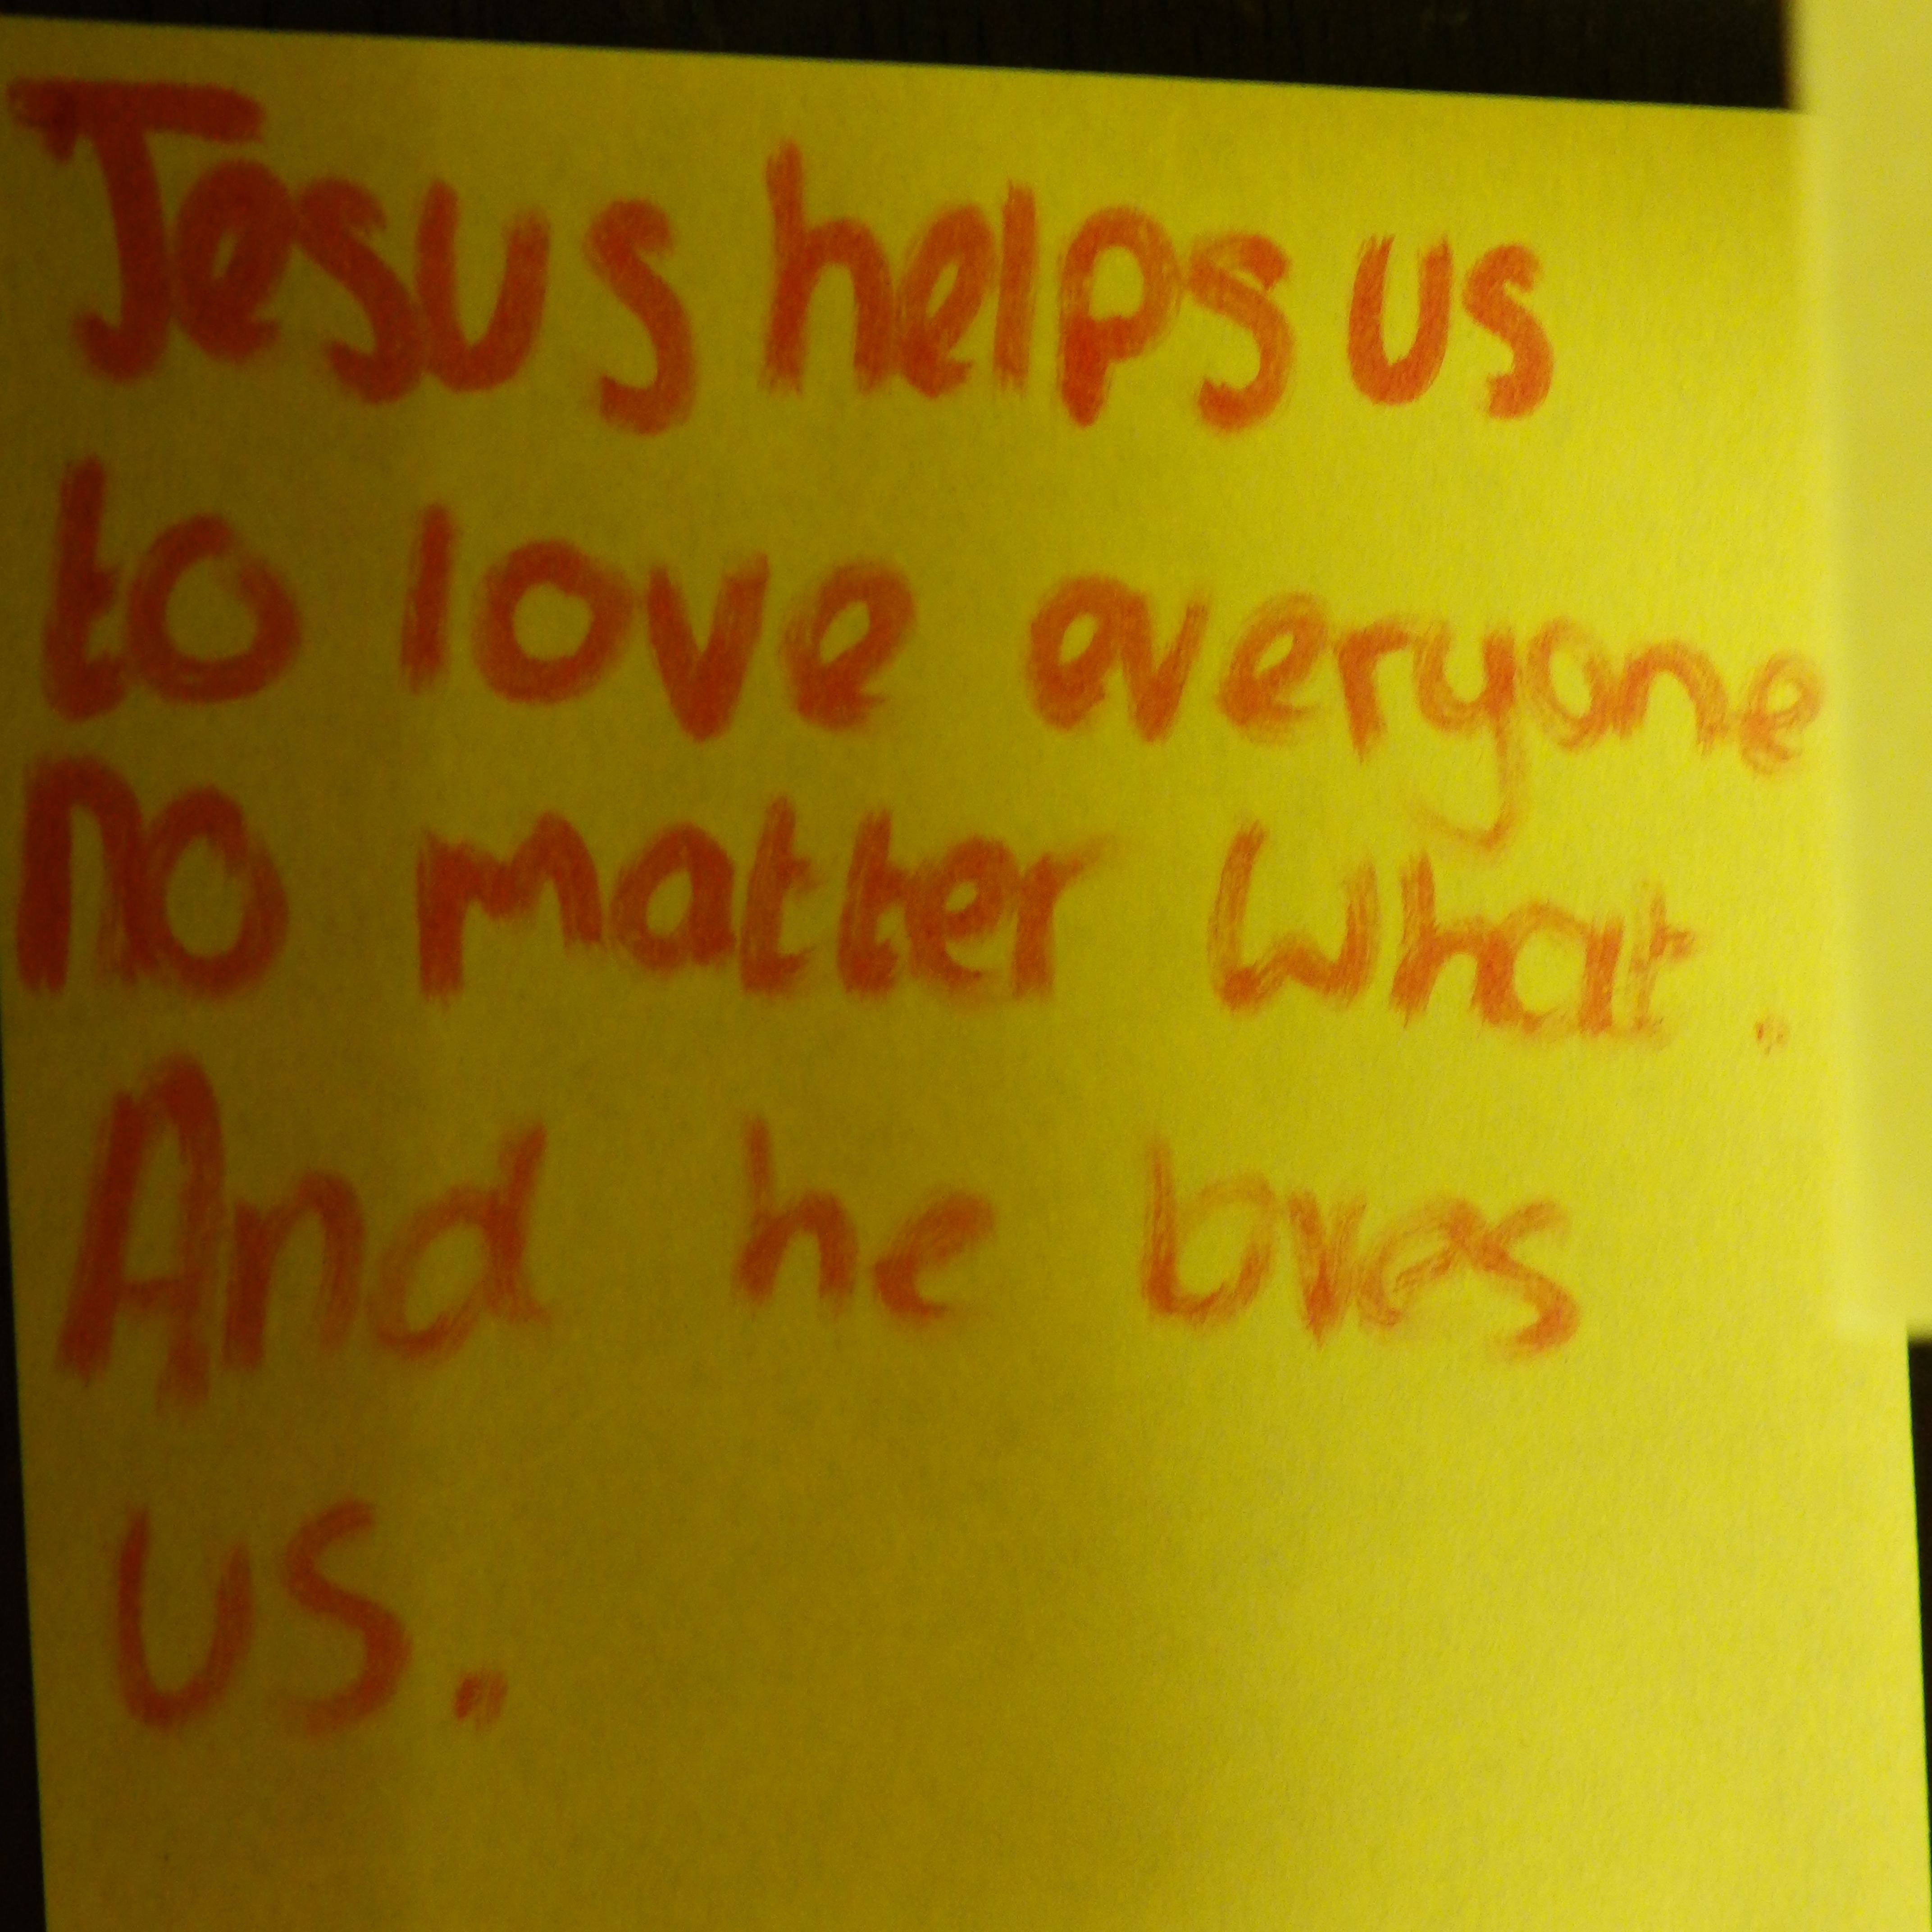 Jesus helps us
to love everyone
no matter what.
And he loves
us.